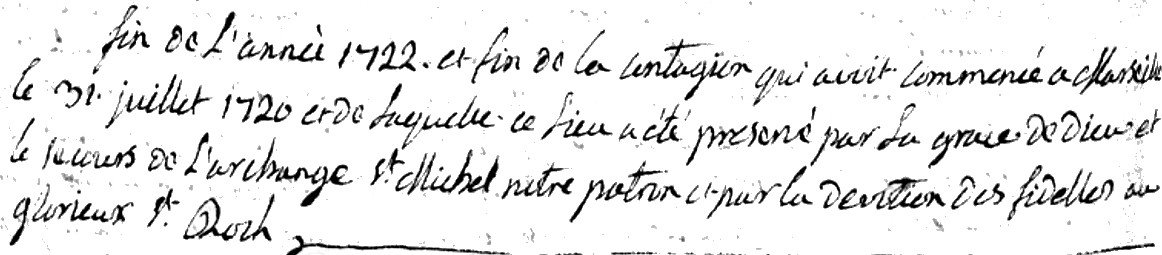 fin de L'année 1722. et fin de la contagion qui avoit commencé a Marseille
le 31. juillet 1720 et de laquelle ce lieu a été preservé par la grace de dieu et
le secours de L'archange st. Michel notre patron et par la devotion des fidelles au
glorieux st. Roch